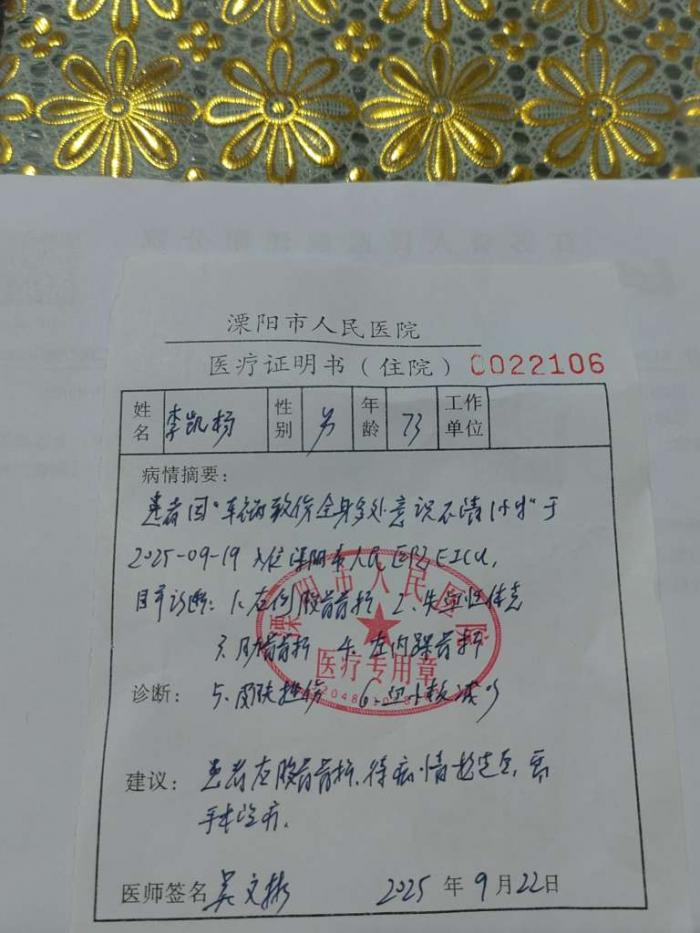 溧阳市人民医院
医疗证明书（住院） 0022106
姓名 李凯杨 性别 男 年龄 73 工作单位
病情摘要：
患者因"车祸致伤全身多处意识不清1小时"于
2025-09-19 入住溧阳市人民医院EICU,
目前诊断：1.左侧股骨骨折 2.失血性休克
3.肋骨骨折 4.左内踝骨折
诊断：5.皮肤挫伤 6.血小板减少
溧阳市人民医院
医疗专用章
建议：患者左股骨骨折，待病情稳定后，需
手术治疗.
医师签名 吴文彬 2025年9月22日